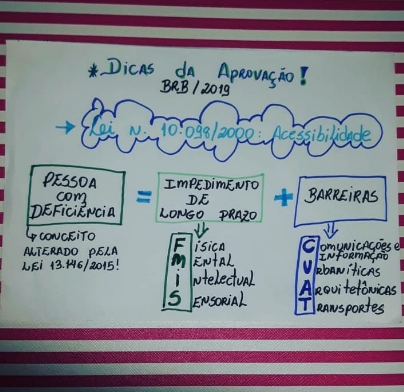 * Dicas da Aprovação!
BRB/2019
→ Lei N. 10.098/2000: Acessibilidade
PESSOA COM DEFICIÊNCIA = IMPEDIMENTO DE LONGO PRAZO + BARREIRAS
↳ CONCEITO
ALTERADO PELA
LEI 13.146/2015!
FÍSICA
MENTAL
INTELECTUAL
SENSORIAL
COMUNICAÇÕES E
INFORMAÇÃO
URBANÍTICAS
ARQUITETÔNICAS
TRANSPORTES